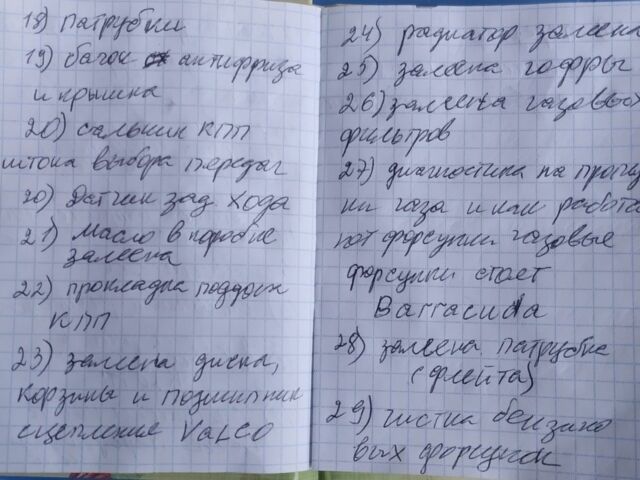 18) патрубки
19) бачок антифриза
и крышка
20) сальник КПП
штока выбора передач
20) Датчик зад хода
21) Масло в коробке
замена
22) прокладка поддон
КПП
23) замена диска,
корзины и подшипник
сцепления Valeo
24) радиатор замена
25) замена гофры
26) замена газовых
фильтров
27) диагностика на пропу
ки газа и как работа
ют форсунки газовые
форсунки стоят
Barracuda
28) замена патрубка
(флейта)
29) чистка бензино
вых форсунок